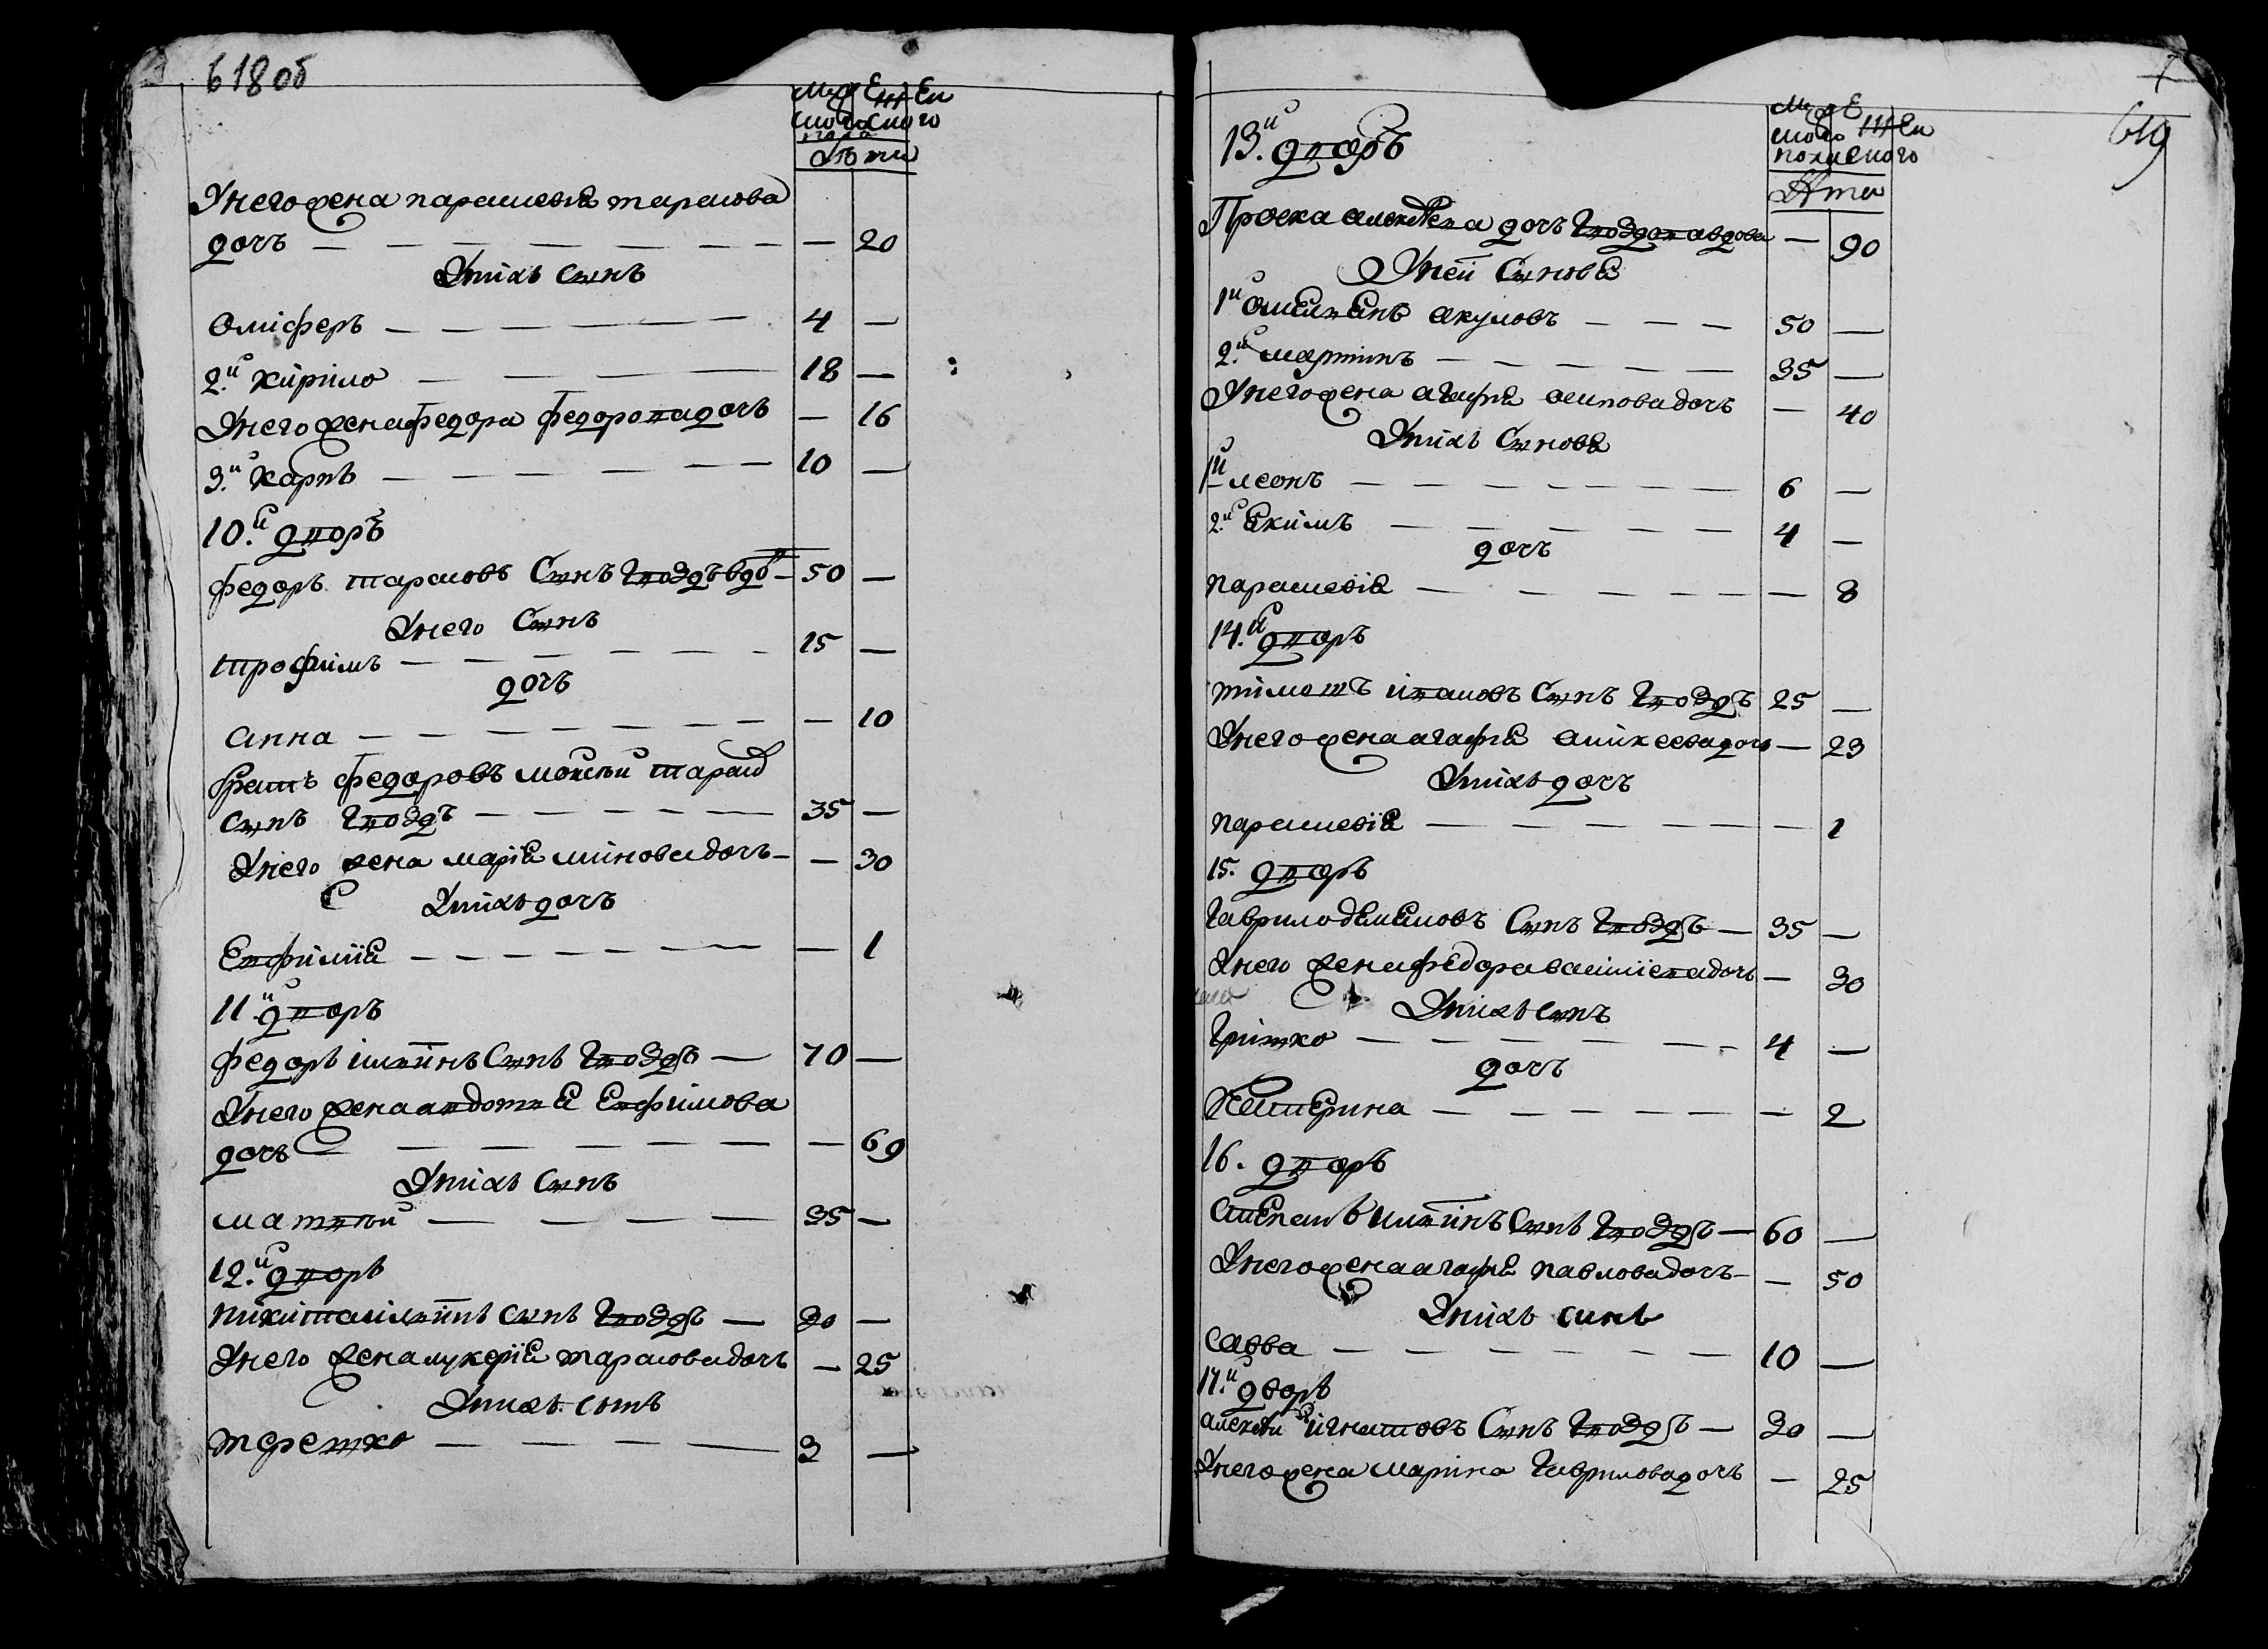 618 об
Му Жен
ского ского
пола
Лѣта
У него жена параскевія тарасова
дочь — — — — — — — 20
У нихъ Сынъ
Олїферъ — — — — — — 4 —
2.й Кирило — — — — 18 —
У него жена федора федорова дочь — 16
3.й Карпъ — — — — — 10 —
10.й дворъ
федоръ тарасовъ Сынъ Гвоздъ вдов — 50 —
У него Сынъ
трофимъ — — — — — — 15 —
дочь
Анна — — — — — — — 10
братъ федоровъ мойсѣй тарасов
Сынъ Гвоздъ — — — — — 35 —
У него жена марія минова дочь — — 30
У нихъ дочь
Евфимія — — — — — — — 1
11.й дворъ
федоръ илїинъ Сынъ Гвоздъ — 70 —
У него жена авдотія Евфимова
дочь — — — — — — — 69
У нихъ Сынъ
матвѣй — — — — 35 —
12.й дворъ
Никита илїинъ Сынъ Гвоздъ — 30 —
У него жена лукерія тарасова дочь — 25
У нихъ сынъ
терешко — — — — 3 —
619
13.й дворъ
Му Жен
ского ского
пола
Лѣта
Проска алексѣева дочь Гвоздова вдова — 90
У ней Сынове
1й Омелянъ акуловъ — — — 50 —
2.й мартинъ — — — — — 35 —
У него жена агафія осипова дочь — 40
У нихъ Сынове
1й леонъ — — — — — — — 6 —
2.й Екимъ — — — — — 4 —
дочь
параскевія — — — — — — 8
14.й дворъ
тимошъ ивановъ Сынъ Гвоздъ 25 —
У него жена агафія аликсеева дочь — 23
У нихъ дочь
параскевія — — — — — — 1
15. дворъ
Гаврило демановъ Сынъ Гвоздъ — 35 —
У него жена федора василіева дочь — 30
У нихъ сынъ
Гришко — — — — — — 4 —
дочь
Катерина — — — — — — 2
16. дворъ
Степанъ илїинъ Сынъ Гвоздъ — 60 —
У него жена агафія павлова дочь — — 50
У нихъ сынъ
Савва — — — — — — 10 —
17.й дворъ
алексѣй игнатовъ Сынъ Гвоздъ — 30 —
У него жена марина Гаврилова дочь — 25